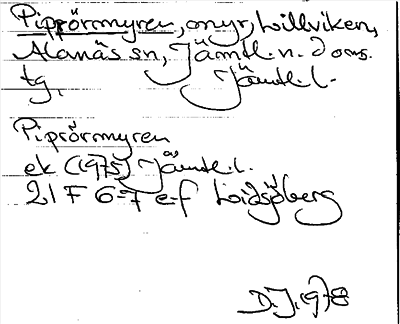 Piprörmyren, myr, Lillviken,
Alanäs sn, Jämtl. n. doms.
tg, Jämtl. l.
Piprörmyren
ek (1975) Jämtl. l.
21 F 6-7 e-f Loidsjöberg
D.J. 1978